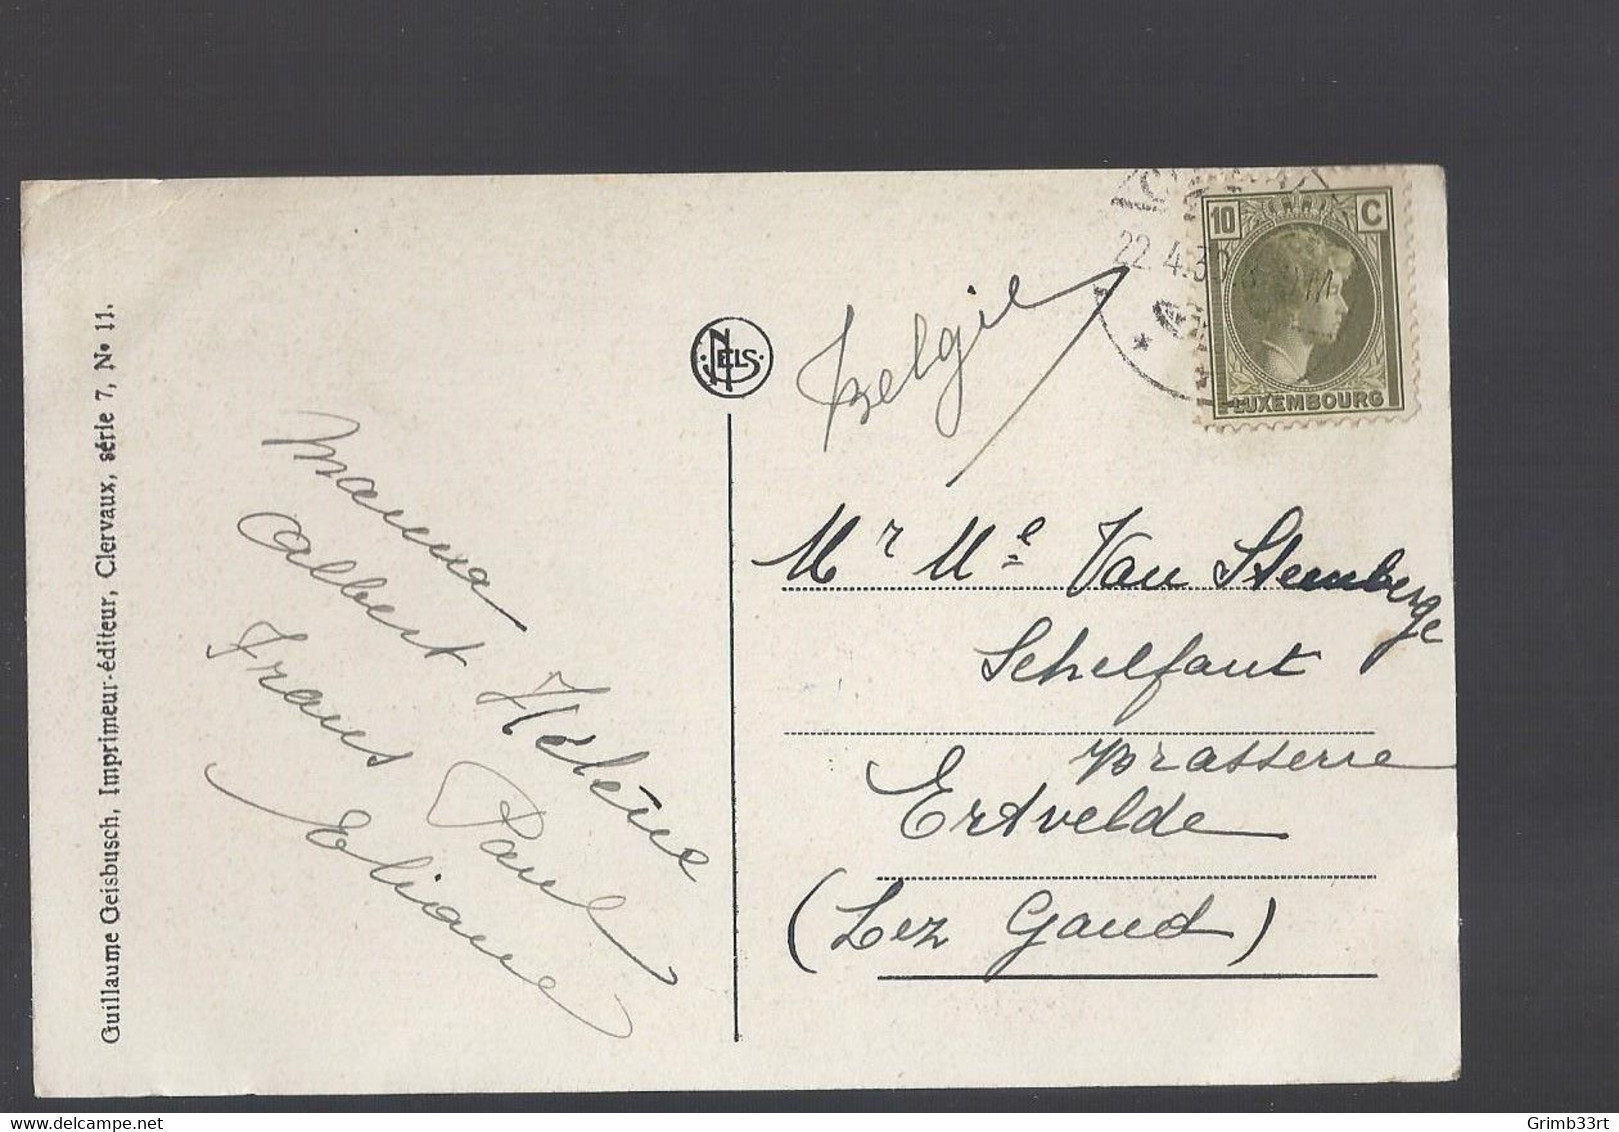 Guillaume Geisbusch, Imprimeur-éditeur, Clervaux, série 7, N° 11.
Mama
Albert Hélène
Frans Paul
Eliane
NELS
Belgie
22.4.3
10 C
LUXEMBOURG
Mr Me Van Steenberge
Schelfaut
Brasserie
Ertvelde
(Lez Gand)
Grimb33rt
delcampe.net